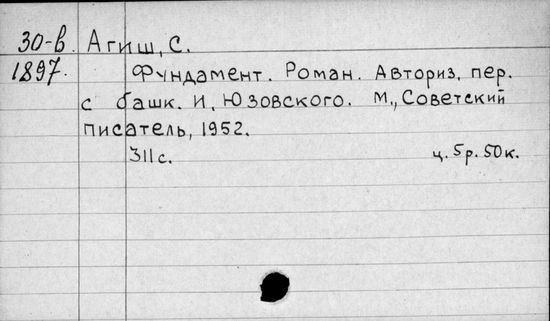 30-в. Агиш, С.
1897. Фундамент. Роман. Авториз. пер.
с башк. И. Юзовского. М., Советский
писатель, 1952.
311 с. ц. 5 р. 50 к.